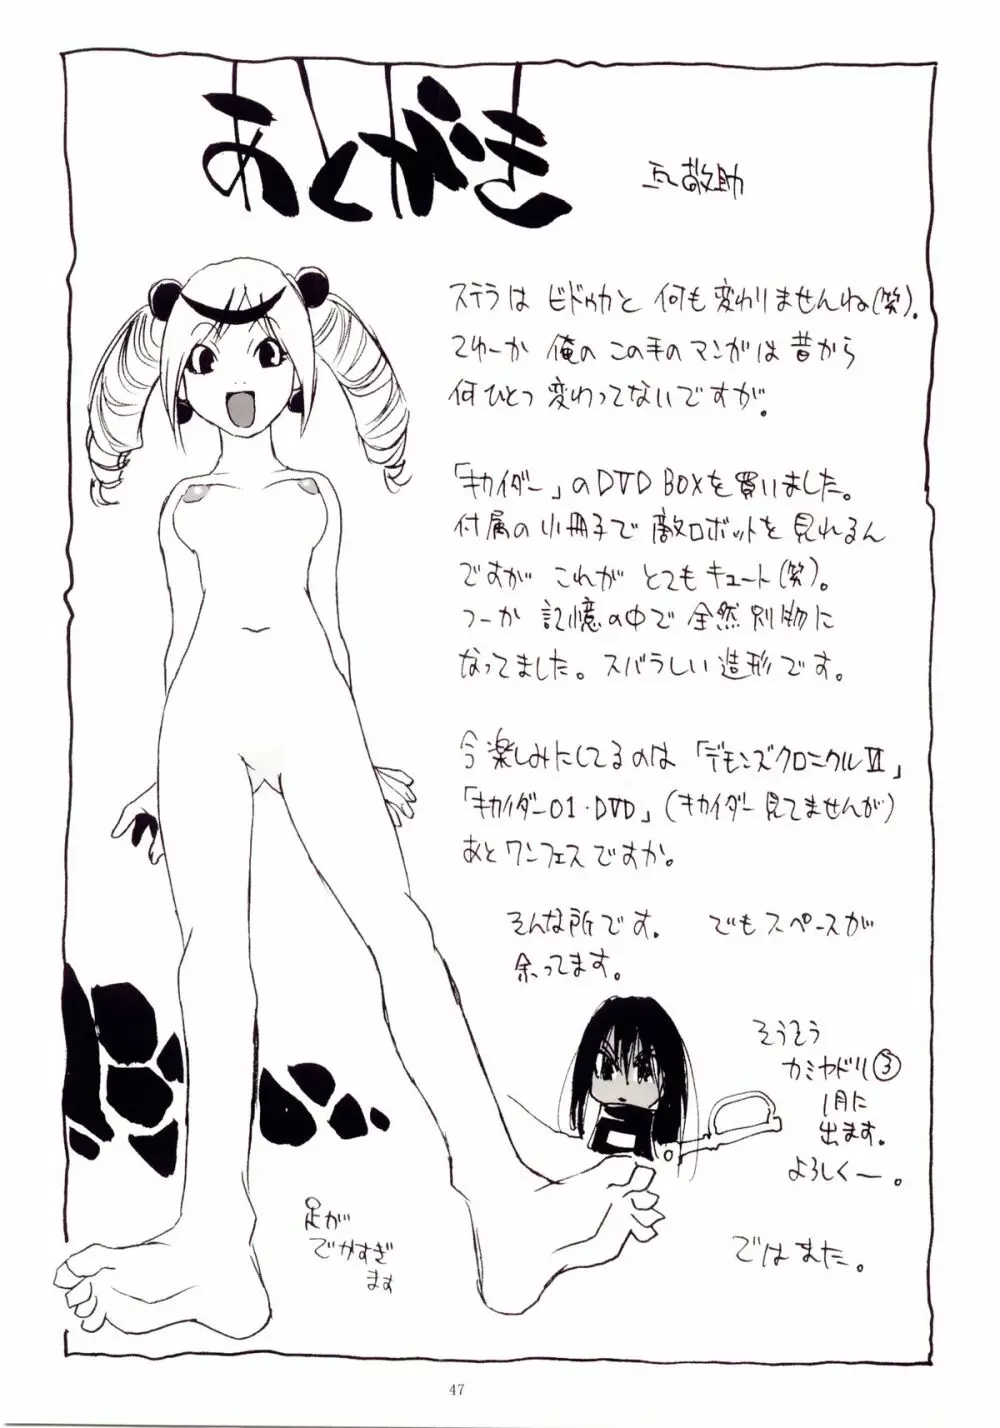 あとがき
ステラは ビドゥカと 何も変わりませんね(笑)。
てゆーか 俺の この手のマンガは 昔から
何ひとつ 変わってないですが。
「キカイダー」のDVD BOXを買いました。
付属の小冊子で 敵ロボットを 見れるん
ですが これが とてもキュート(笑)。
つーか 記憶の中で 全然別物に
なってました。スバラしい 造形です。
今楽しみにしてるのは「デモンズクロニクルⅥ」
「キカイダー01・DVD」(キカイダー見てませんが)
あとワンフェスですか。
そんな所です。 でもスペースが
余ってます。
そうそう
カミヤドリ③
1月に
出ます。
よろしくー。
足が
でかすぎ
ます
ではまた。
47